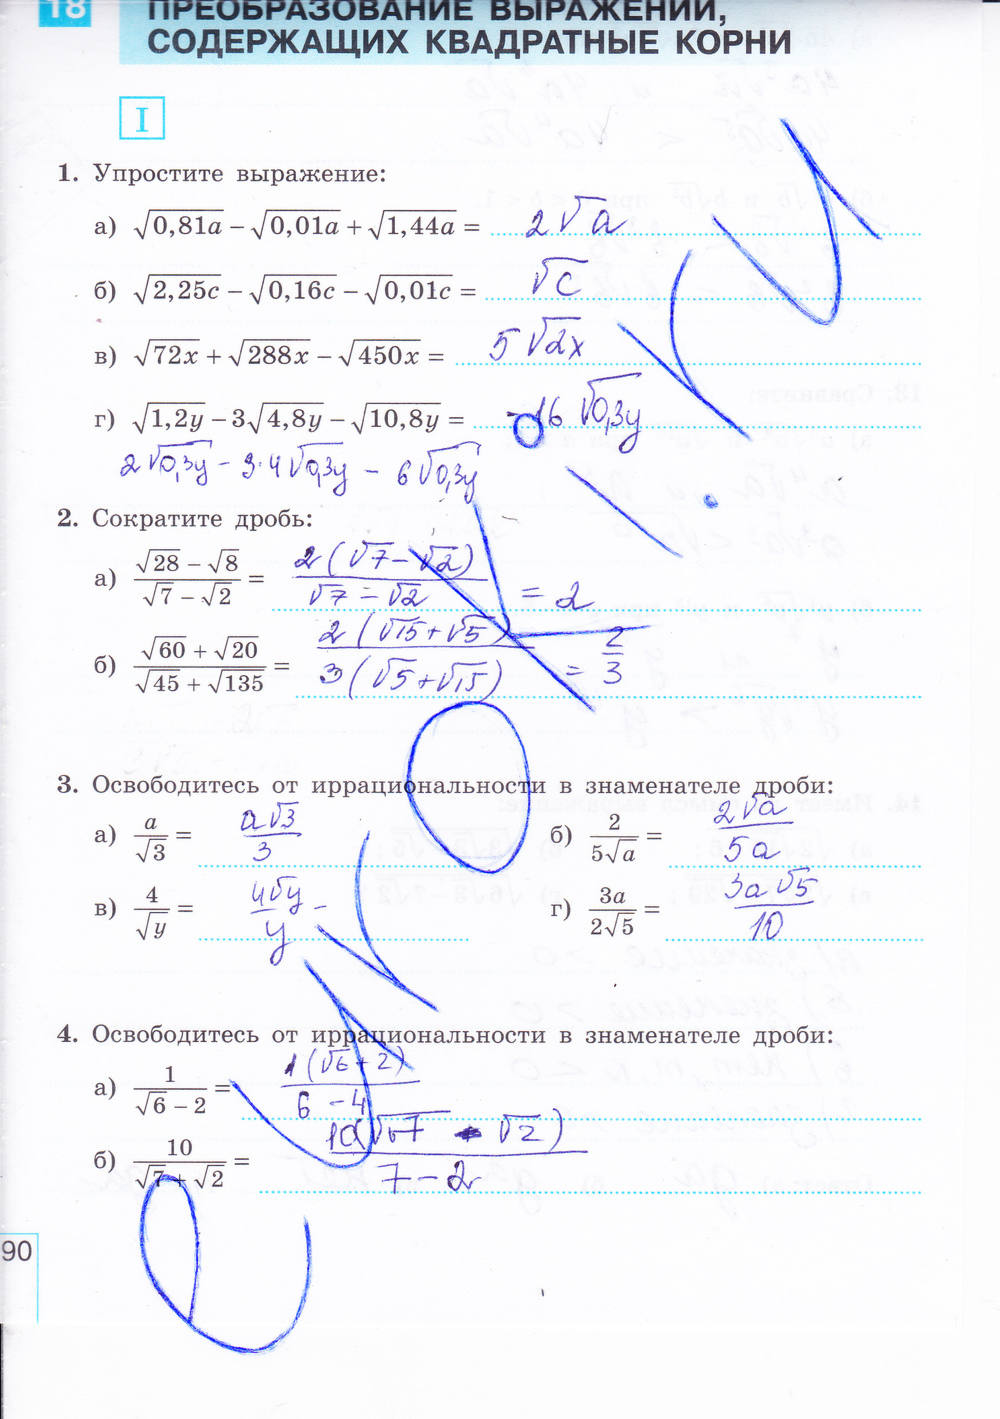 18 ПРЕОБРАЗОВАНИЕ ВЫРАЖЕНИЙ,
СОДЕРЖАЩИХ КВАДРАТНЫЕ КОРНИ
I
1. Упростите выражение:
а) √0,81a − √0,01a + √1,44a = 2√a
б) √2,25c − √0,16c − √0,01c = √c
в) √72x + √288x − √450x = 5√2x
г) √1,2y − 3√4,8y − √10,8y = -16√0,3y
2√0,3y − 3·4√0,3y − 6√0,3y
2. Сократите дробь:
а) (√28 − √8)/(√7 − √2) = 2(√7 − √2)/(√7 − √2) = 2
б) (√60 + √20)/(√45 + √135) = 2(√15 + √5)/3(√5 + √15) = 2/3
3. Освободитесь от иррациональности в знаменателе дроби:
а) a/√3 = a√3/3 б) 2/5√a = 2√a/5a
в) 4/√y = 4√y/y г) 3a/2√5 = 3a√5/10
4. Освободитесь от иррациональности в знаменателе дроби:
а) 1/(√6 − 2) = 1(√6 + 2)/(6 − 4)
б) 10/(√7 + √2) = 10(√7 - √2)/(7 − 2)
90